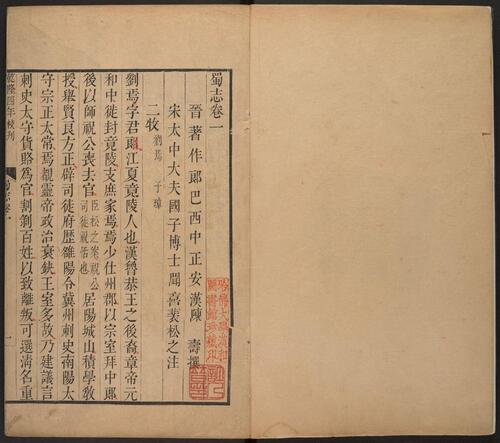 蜀志卷一
晉著作郎巴西中正安漢陳 壽撰
宋太中大夫國子博士聞喜裴松之注
二牧 劉焉 子璋
劉焉字君郎江夏竟陵人也漢魯恭王之後裔章帝元
和中徙封竟陵支庶家焉焉少仕州郡以宗室拜中郎
後以師祝公喪去官臣松之案祝公司徒祝恬也居陽城山積學教
授舉賢良方正辟司徒府歷雒陽令冀州刺史南陽太
守宗正太常焉覩靈帝政治衰缺王室多故乃建議言
刺史太守貨賂爲官割剝百姓以致離叛可選清名重
乾隆四年校刊
蜀志卷一
一
哈佛大學漢和圖書館珍藏印